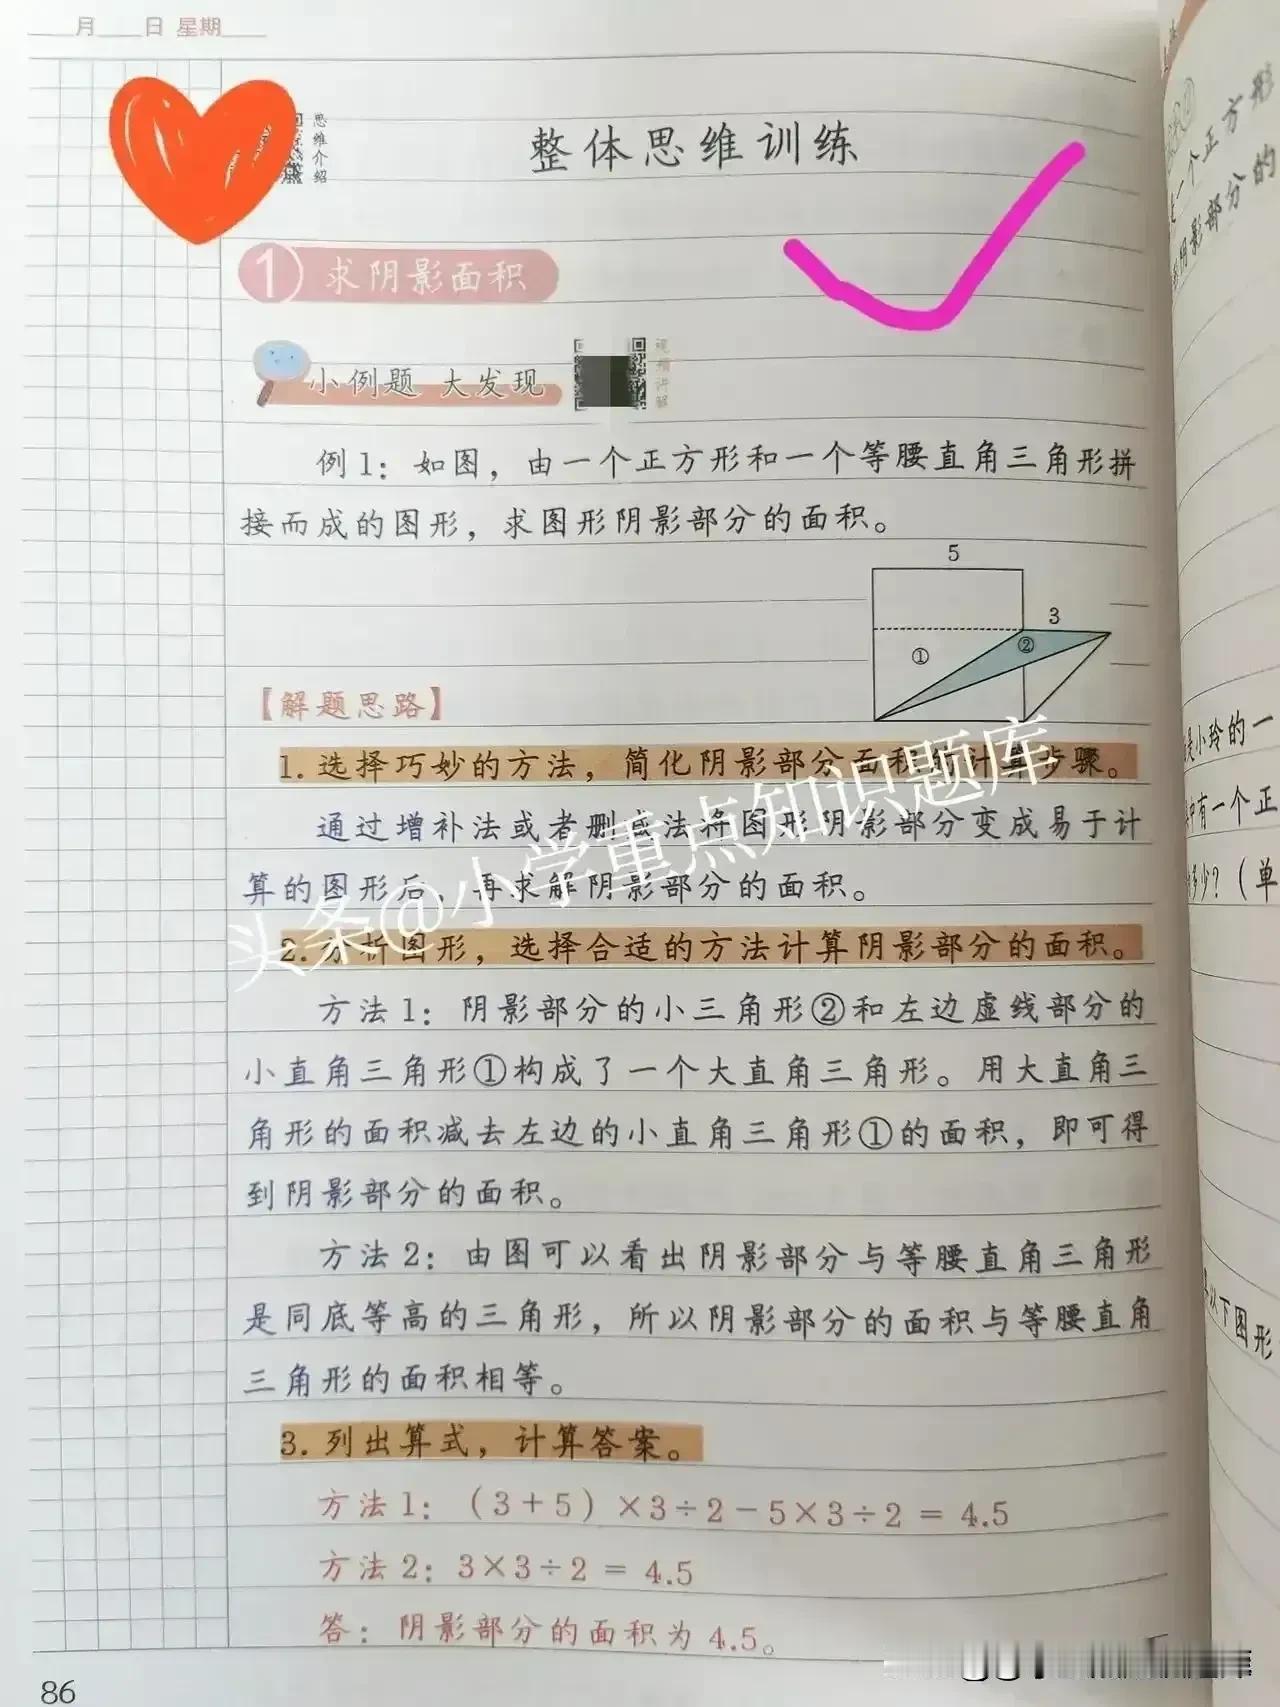 月 日 星期
思维介绍
整体思维训练
1 求阴影面积
小例题 大发现
视频讲解
例1：如图，由一个正方形和一个等腰直角三角形拼
接而成的图形，求图形阴影部分的面积。
5
3
①
②
【解题思路】
1.选择巧妙的方法，简化阴影部分面积的计算步骤。
通过增补法或者删减法将图形阴影部分变成易于计
算的图形后，再求解阴影部分的面积。
2.分析图形，选择合适的方法计算阴影部分的面积。
方法1：阴影部分的小三角形②和左边虚线部分的
小直角三角形①构成了一个大直角三角形。用大直角三
角形的面积减去左边的小直角三角形①的面积，即可得
到阴影部分的面积。
方法2：由图可以看出阴影部分与等腰直角三角形
是同底等高的三角形，所以阴影部分的面积与等腰直角
三角形的面积相等。
3.列出算式，计算答案。
方法1：（3+5）×3÷2－5×3÷2 = 4.5
方法2：3×3÷2 = 4.5
答：阴影部分的面积为4.5。
86
头条@小学重点知识题库
一个正方形
阴影部分的
是小玲的一
中有一个正
多少？（单
以下图形